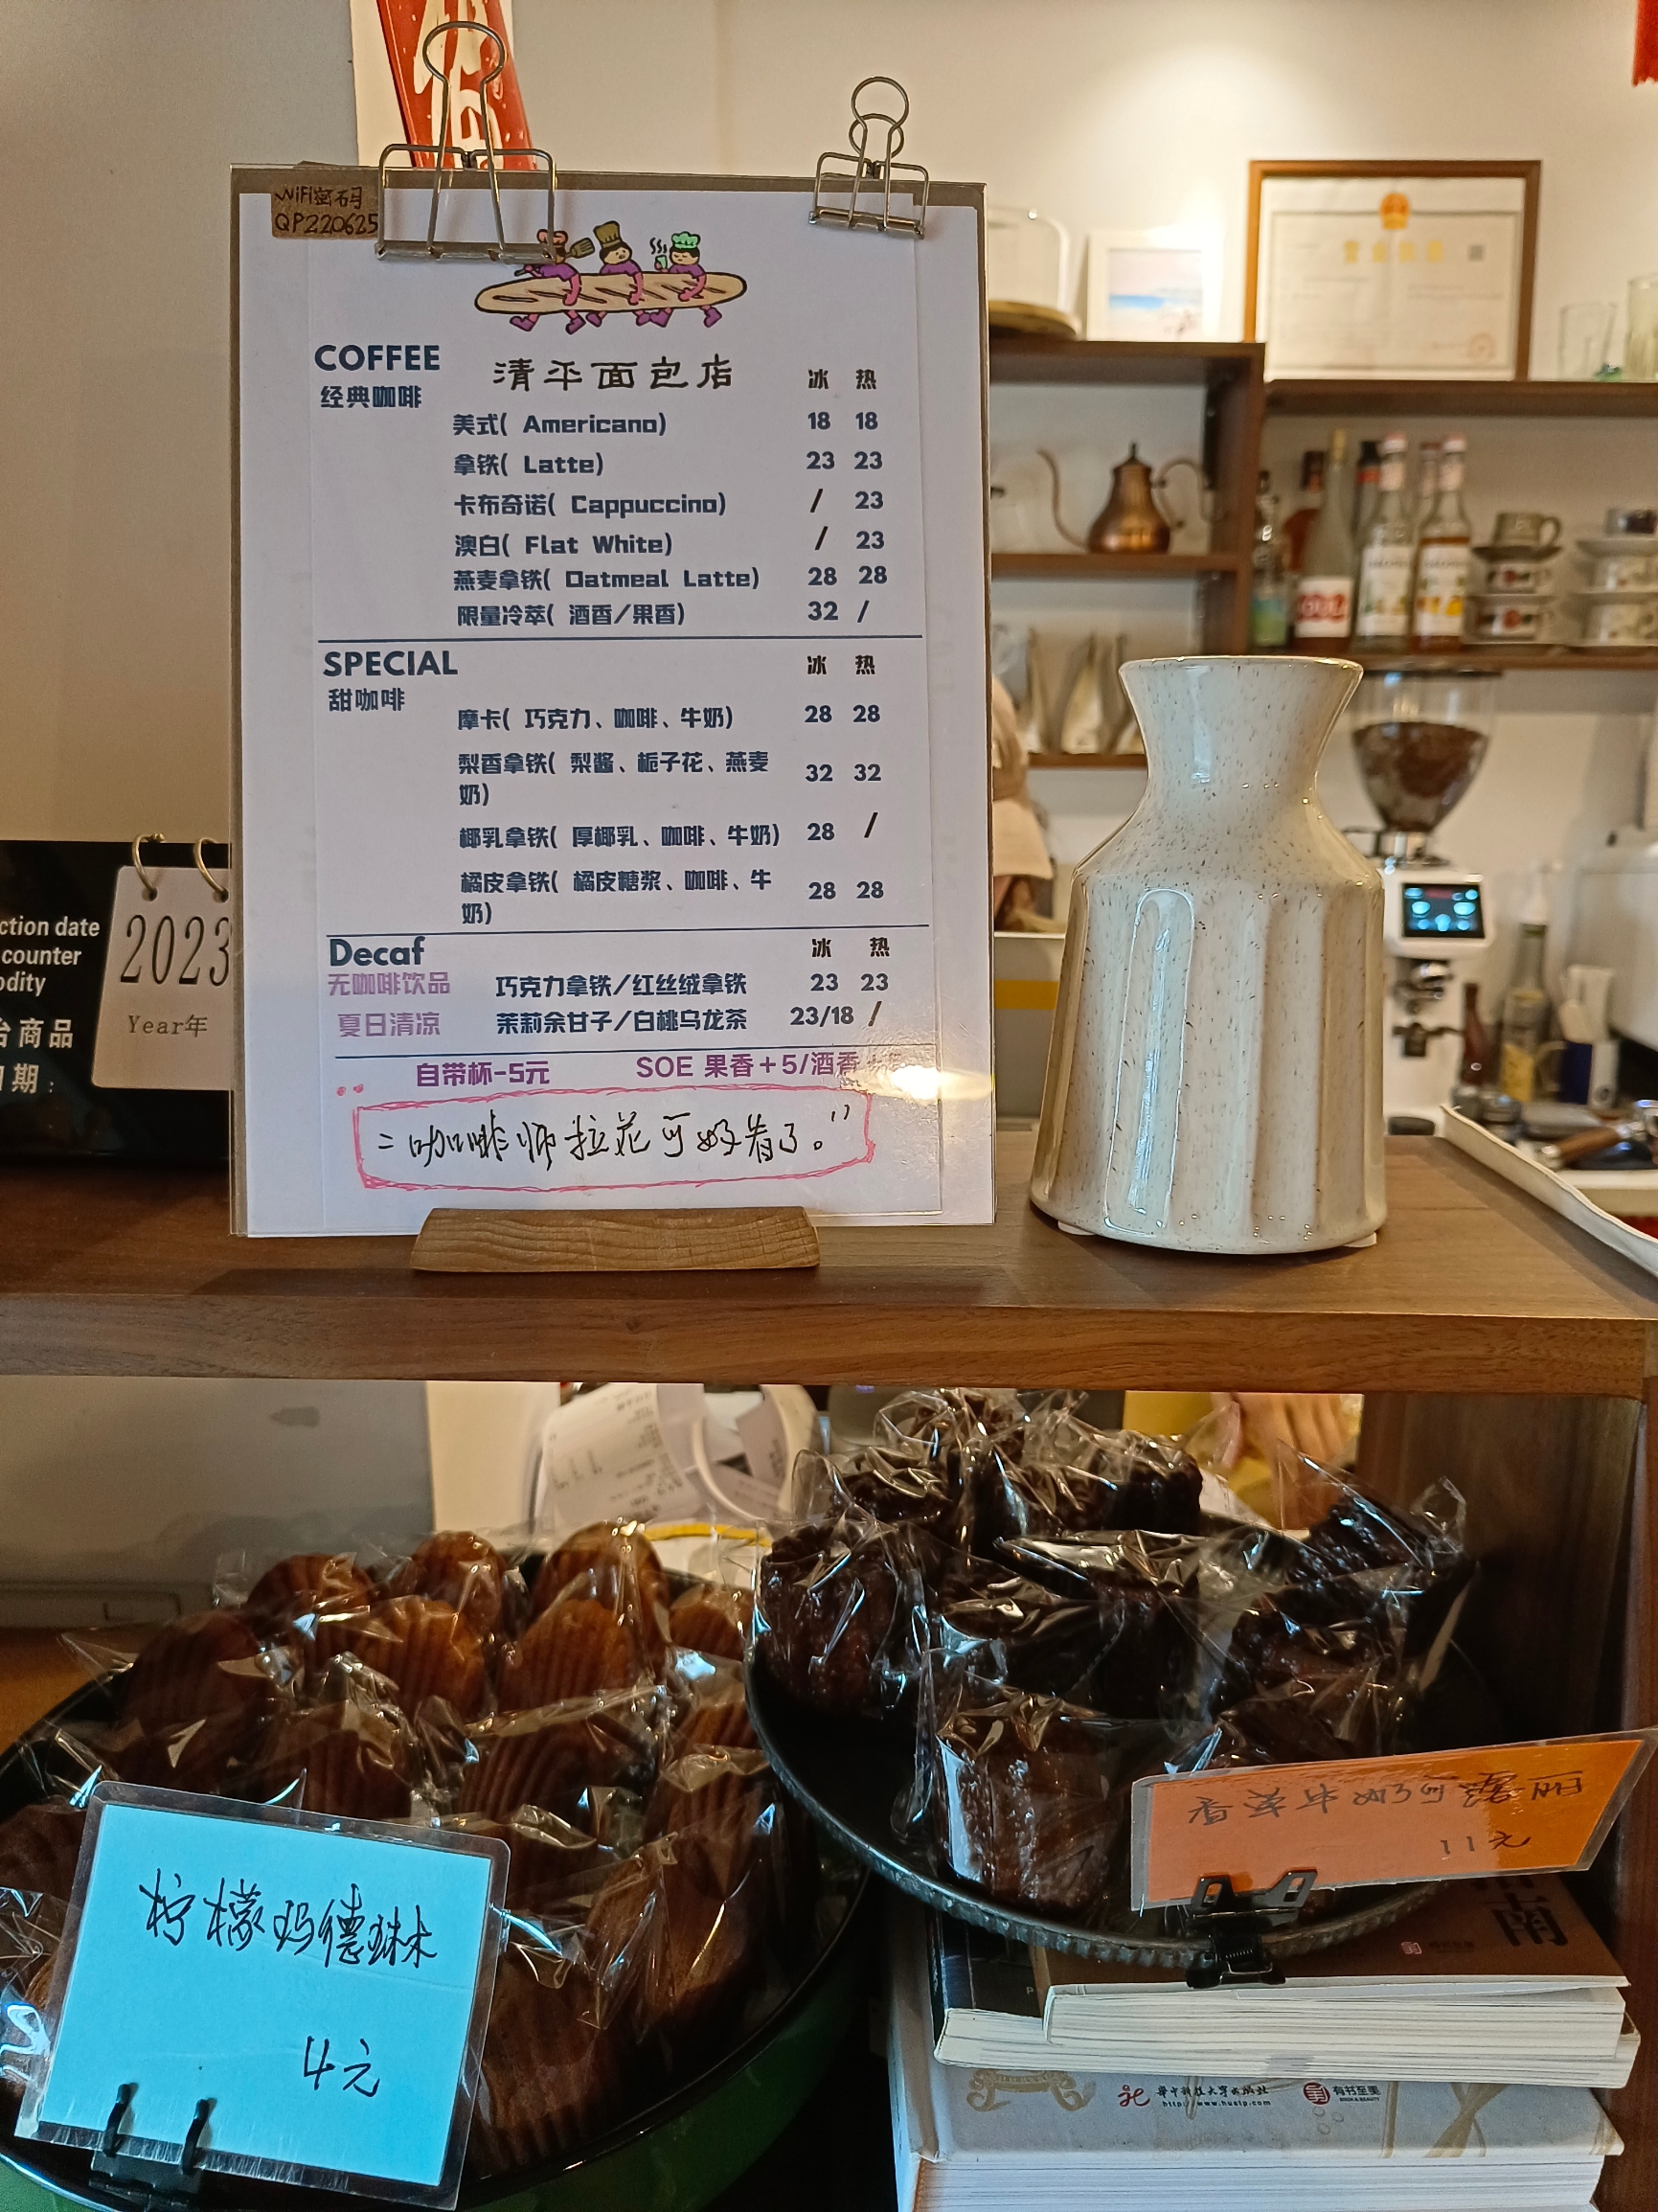 WiFi密码
QP220625
COFFEE
经典咖啡
清平面包店
冰 热
美式( Americano) 18 18
拿铁( Latte) 23 23
卡布奇诺( Cappuccino) / 23
澳白( Flat White) / 23
燕麦拿铁( Oatmeal Latte) 28 28
限量冷萃( 酒香/果香) 32 /
SPECIAL 冰 热
甜咖啡
摩卡( 巧克力、咖啡、牛奶) 28 28
梨香拿铁( 梨酱、栀子花、燕麦
奶) 32 32
椰乳拿铁( 厚椰乳、咖啡、牛奶) 28 /
橘皮拿铁( 橘皮糖浆、咖啡、牛
奶) 28 28
Decaf 冰 热
无咖啡饮品 巧克力拿铁/红丝绒拿铁 23 23
夏日清凉 茉莉余甘子/白桃乌龙茶 23/18 /
自带杯-5元 SOE 果香+5/酒香
咖啡师拉花可好看了。
ction date
counter
odity
商品
期:
2023
Year年
营业执照
柠檬玛德琳
4元
香草牛奶可露丽
11元
指南
华中科技大学出版社
http://www.hustp.com
有书至美
BOOK & BEAUTY